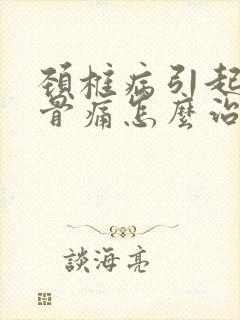 頚椎病引起
骨痛怎麼治
談海亮